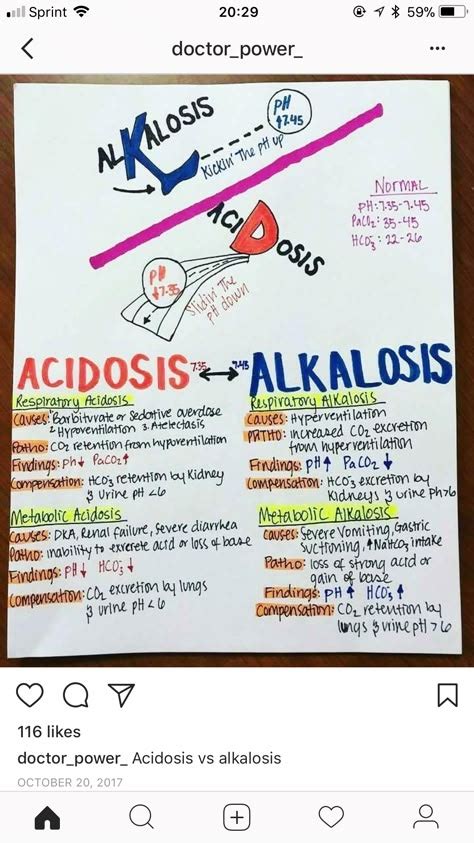 Sprint 20:29 59%
doctor_power_
ALKALOSIS
PH
↑7.45
Kickin' The pH up
ACIDOSIS
PH
↓7.35
Slidin' The
pH down
NORMAL
PH: 7.35-7.45
PaCO₂: 35-45
HCO₃⁻: 22-26
ACIDOSIS 7.35 ↔ 7.45 ALKALOSIS
Respiratory Acidosis
Causes: Barbiturate or Sedative overdose
2 Hypoventilation 3. Atelectasis
Patho: CO₂ retention from hypoventilation
Findings: Ph↓ PaCO₂↑
Compensation: HCO₃⁻ retention by Kidney
& Urine pH <6
Metabolic Acidosis
Causes: DKA, Renal failure, Severe diarrhea
Patho: inability to excrete acid or loss of base
Findings: PH↓ HCO₃⁻↓
Compensation: CO₂ excretion by lungs
& urine pH <6
Respiratory Alkalosis
Causes: Hyperventilation
PATHO: increased CO₂ excretion
from hyperventilation
Findings: PH↑ PaCO₂↓
Compensation: HCO₃⁻ excretion by
Kidneys & urine pH>6
Metabolic Alkalosis
Causes: Severe Vomiting, Gastric
Suctioning, ↑NaHCO₃ intake
Patho: loss of strong acid or
gain of base
Findings: PH↑ HCO₃⁻↑
Compensation: CO₂ retention by
lungs & urine pH >6
116 likes
doctor_power_ Acidosis vs alkalosis
OCTOBER 20, 2017